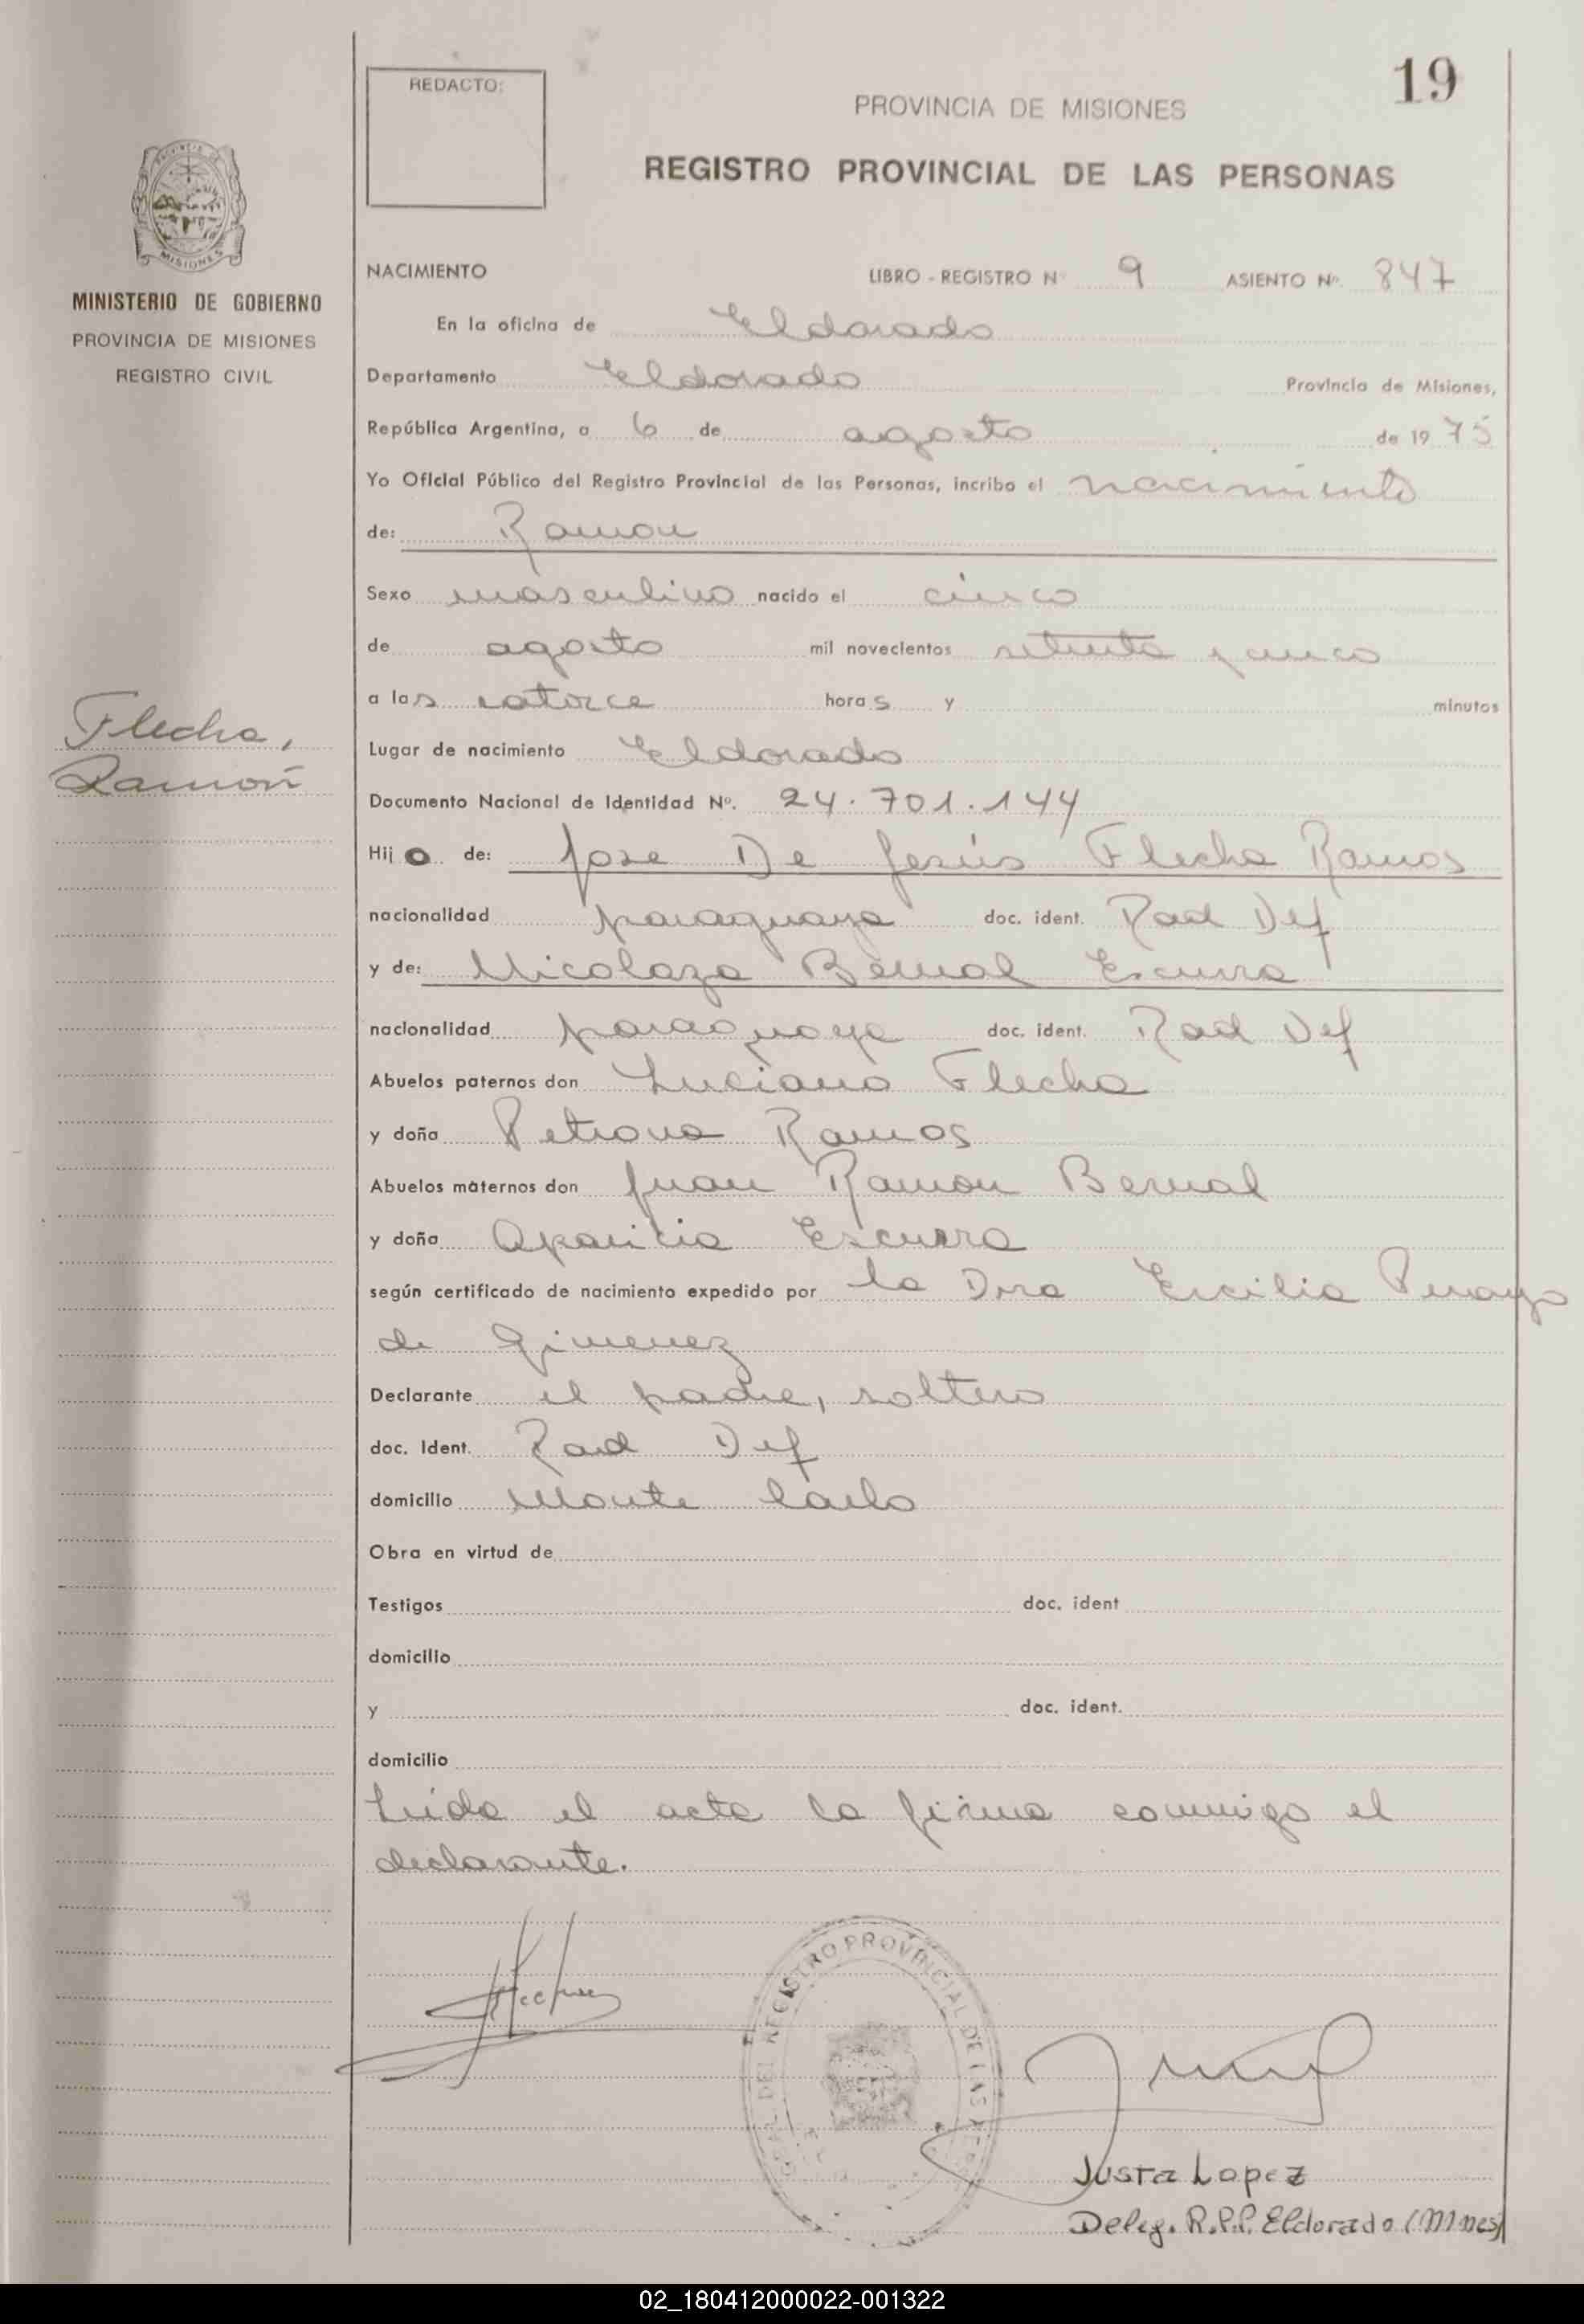 19
REDACTO:
PROVINCIA DE MISIONES
REGISTRO PROVINCIAL DE LAS PERSONAS
MISIONES
MINISTERIO DE GOBIERNO
PROVINCIA DE MISIONES
REGISTRO CIVIL
Flecha,
Ramón
NACIMIENTO LIBRO - REGISTRO Nº 9 ASIENTO Nº. 847
En la oficina de Eldorado
Departamento Eldorado Provincia de Misiones,
República Argentina, a 6 de agosto de 1975
Yo Oficial Público del Registro Provincial de las Personas, incribo el nacimiento
de: Ramon
Sexo masculino nacido el cinco
de agosto mil novecientos setenta y cinco
a las catorce horas y minutos
Lugar de nacimiento Eldorado
Documento Nacional de Identidad Nº. 24.701.144
Hijo de: Jose De Jesús Flecha Ramos
nacionalidad paraguaya doc. ident. Rad Def
y de: Nicolaza Bernal Escurra
nacionalidad paraguaya doc. ident. Rad Def
Abuelos paternos don Luciano Flecha
y doña Petrona Ramos
Abuelos maternos don Juan Ramon Bernal
y doña Aparicia Escurra
según certificado de nacimiento expedido por la Dra Ercilia Penayo
de Gimenez
Declarante el padre, soltero
doc. Ident. Rad Def
domicilio Monte Carlo
Obra en virtud de
Testigos doc. ident
domicilio
y doc. ident.
domicilio
Leída el acta la firma conmigo el
declarante.
DEL REGISTRO PROVINCIAL DE LAS
Justa Lopez
Deleg. R.P.P. Eldorado (Mnes)
02_180412000022-001322